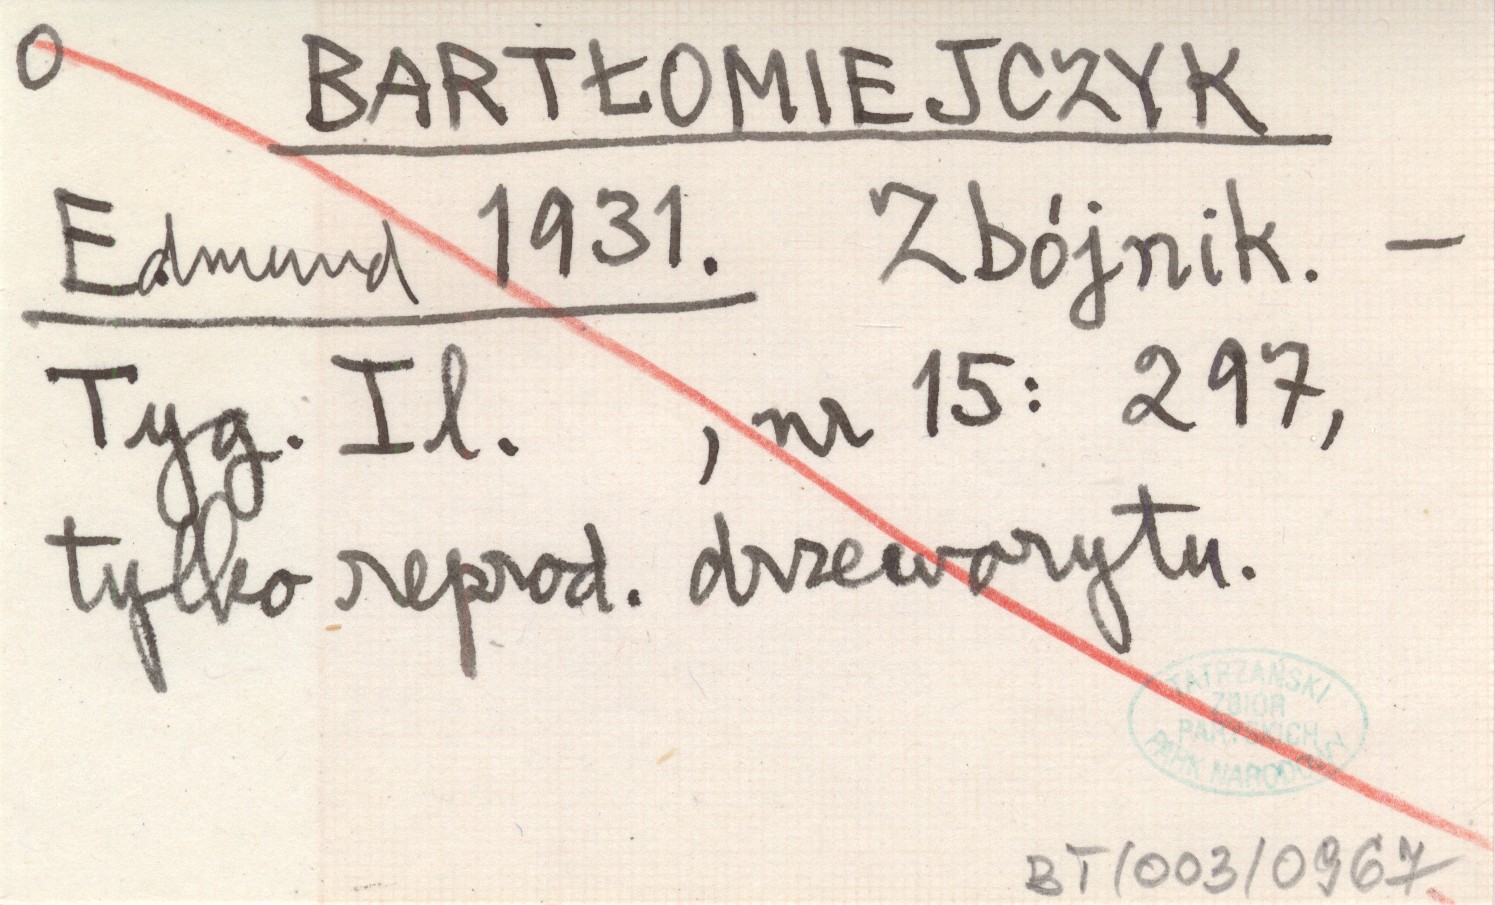 O BARTŁOMIEJCZYK
Edmund 1931. Zbójnik. —
Tyg. Il. , nr 15: 297,
tylko reprod. drzeworytu.
TATRZAŃSKI
ZBIÓR
PARYSKICH
PARK NARODOWY
BT/003/0967